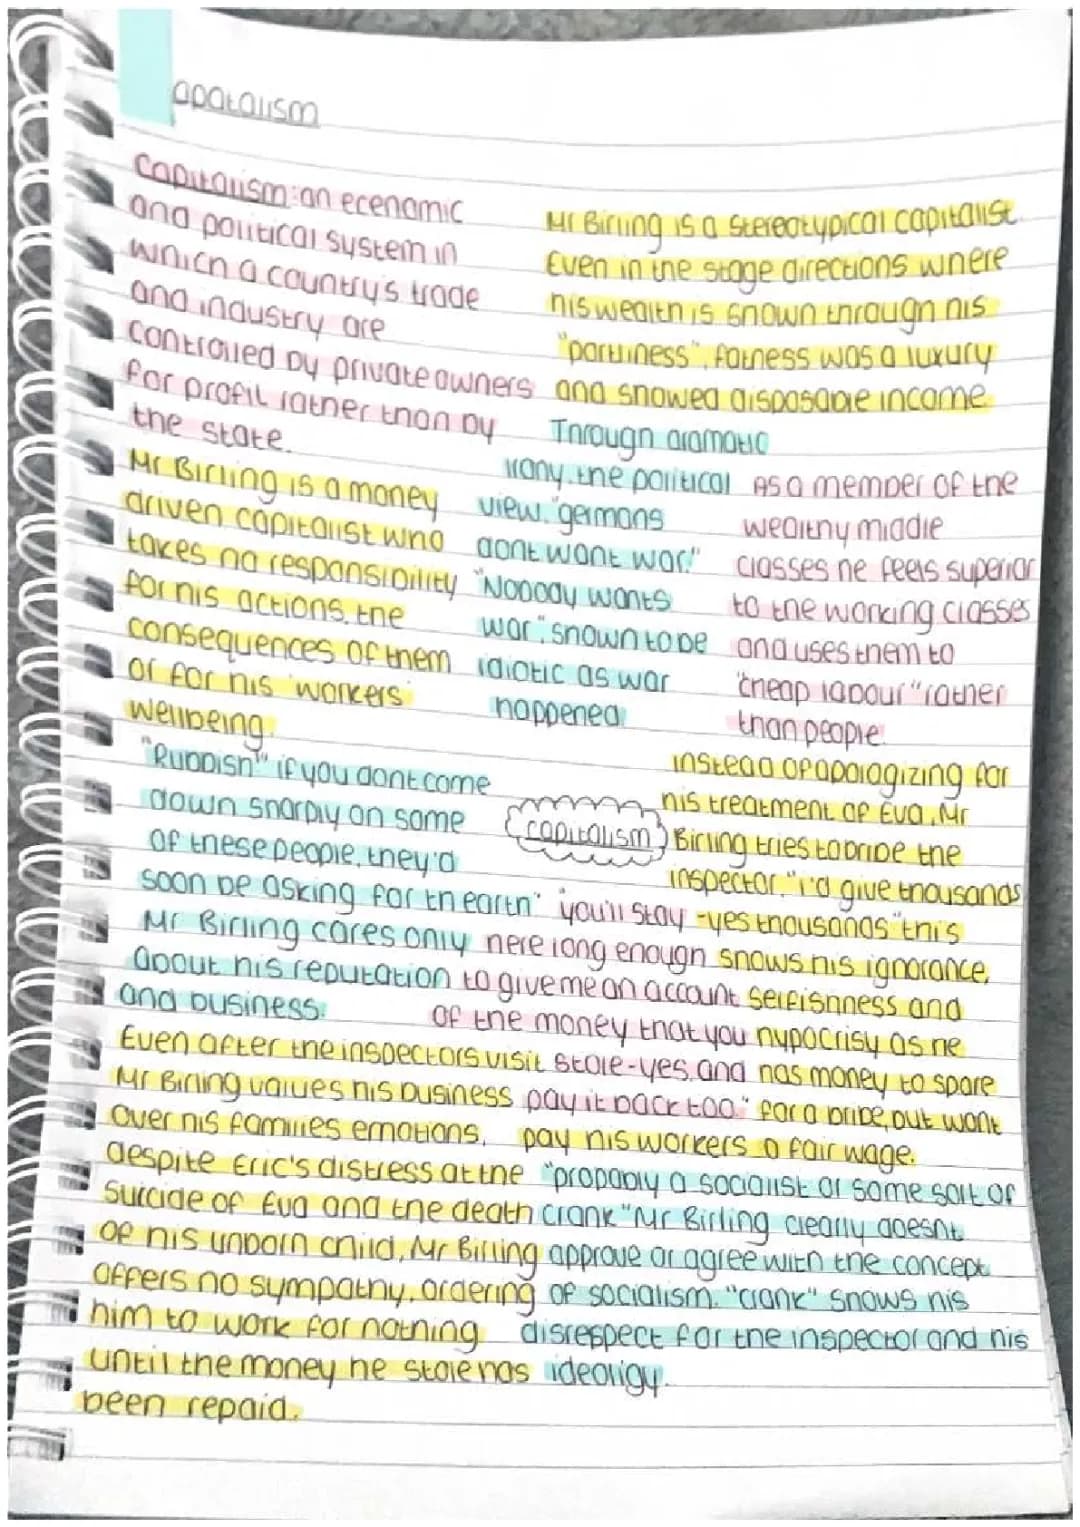 apatalism
Capitalism: an ecenamic
and political system in
which a country's trade
and industry are
controlled by private owners
for profit rather than by
the state.
Mr Birling is a stereotypical capitalist
Even in the stage directions where
his wealth is shown through his
"portliness", fatness was a luxury
and showed disposable income.
Mr Birling is a money
driven capitalist who
takes no responsibility
for his actions, the
consequences of them
or for his 'workers'
wellbeing.
Through dramatic
irony, the political
view. "germans
dont want war."
"Nobody wants
war". shown to be
idiotic as war
happened.
As a member of the
wealthy middle
classes he feels superior
to the working classes
and uses them to
"cheap labour" rather
than people.
"Rubbish" if you dont come
down sharply on some
of these people, they'd
soon be asking for the earth"
Mr Birling cares only
about his reputation
and business.
capitalism
instead of apologizing for
his treatment of Eva, Mr
Birling tries to bribe the
inspector. "i'd give thousands
-yes thousands" this
shows his ignorance,
selfishness and
hypocrisy as he
has money to spare
for a bribe, but wont
pay his workers a fair wage.
you'll stay
here long enough
to give me an account
of the money that you
stole-yes, and
pay it back too."
Even after the inspectors visit
Mr Birling values his business
over his families emotions,
despite Eric's distress at the
suicide of Eva and the death
of his unborn child, Mr Birling
offers no sympathy, ordering
him to work for nothing
until the money he stole has
been repaid.
"probably a socialist or some sort of
crank" Mr Birling clearly doesnt
approve or aggree with the concept
of socialism. "crank" shows his
disrespect for the inspector and his
ideoligy.